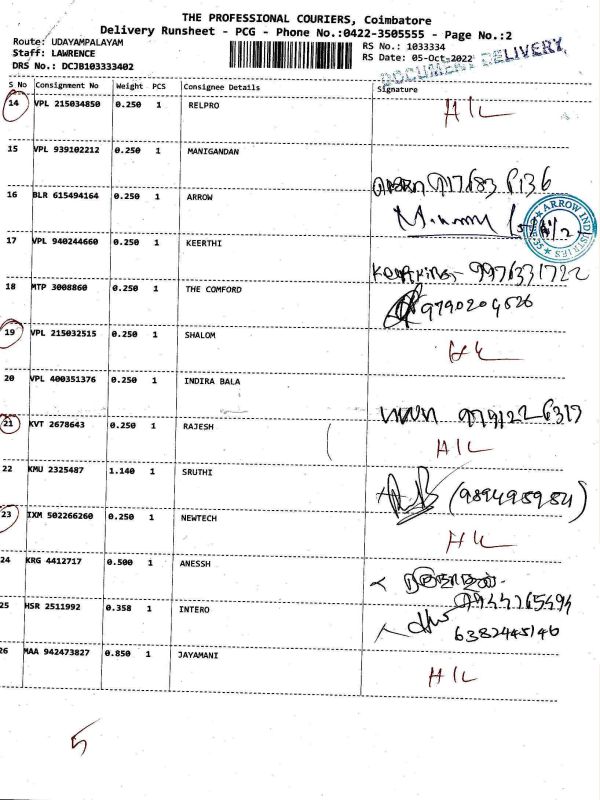 THE PROFESSIONAL COURIERS, Coimbatore
Delivery Runsheet - PCG - Phone No.:0422-3505555 - Page No.:2
Route: UDAYAMPALAYAM
Staff: LAWRENCE
DRS No.: DCJB103333402
RS No.: 1033334
RS Date: 05-Oct-2022
DOCUMENT DELIVERY
S No Consignment No Weight PCS Consignee Details Signature
14 VPL 215034850 0.250 1 RELPRO H/L
15 VPL 939102212 0.250 1 MANIGANDAN
16 BLR 615494164 0.250 1 ARROW
ARROW INDUSTRIES
17 VPL 940244660 0.250 1 KEERTHI 9976331722
18 MTP 3008860 0.250 1 THE COMFORD
19 VPL 215032515 0.250 1 SHALOM H/L
20 VPL 400351376 0.250 1 INDIRA BALA
21 KVT 2678643 0.250 1 RAJESH H/L
22 KMU 2325487 1.140 1 SRUTHI (9894989584)
23 IXM 502266260 0.250 1 NEWTECH H/L
24 KRG 4412717 0.500 1 ANESSH
25 HSR 2511992 0.358 1 INTERO 6382445146
26 MAA 942473827 0.850 1 JAYAMANI H/L
5